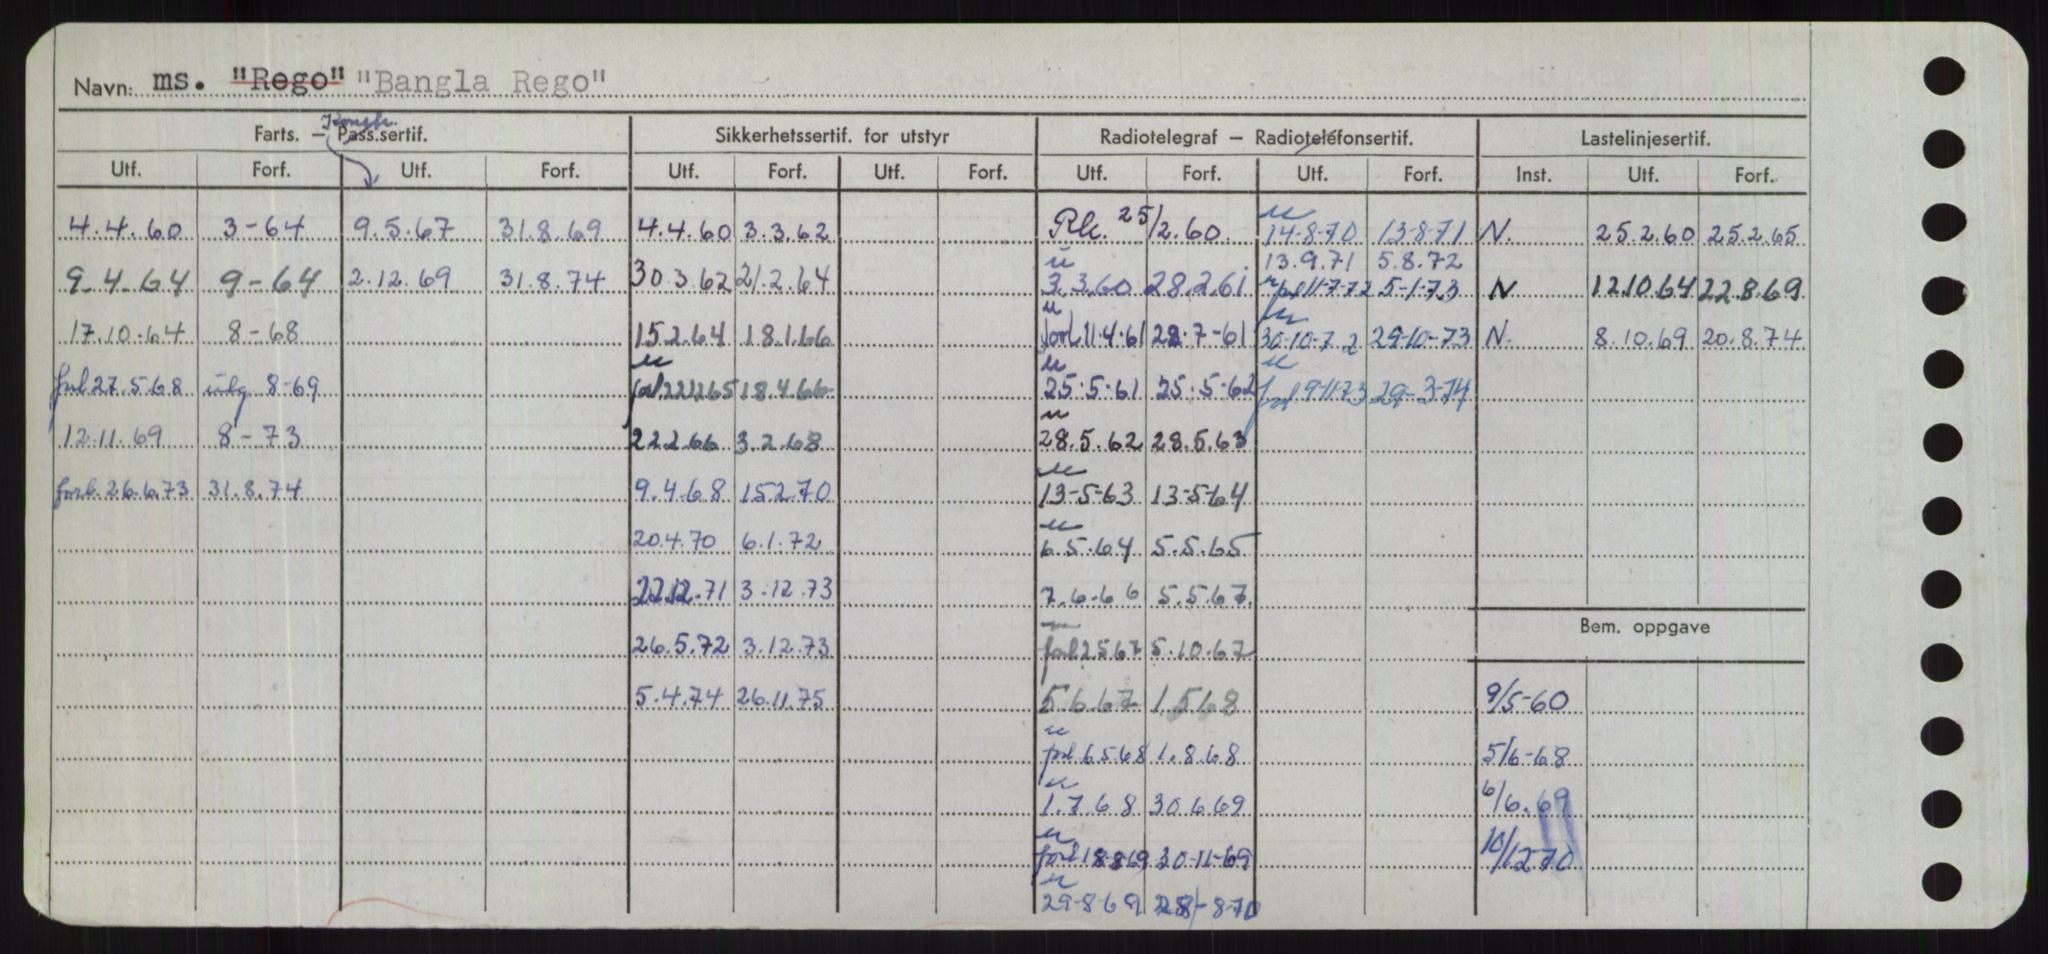 Navn: ms. "Rego" "Bangla Rego"
Farts. – Pass.sertif. Sikkerhetssertif. for utstyr Radiotelegraf – Radiotelefonsertif. Lastelinjesertif.
Utf. Forf. Utf. Forf. Utf. Forf. Utf. Forf. Utf. Forf. Utf. Forf. Inst. Utf. Forf.
4.4.60 3-64 9.5.67 31.8.69 4.4.60 3.3.62 Rk. 25/2.60. u 14-8-70 13-8-71 N. 25.2.60 25.2.65
13.9.71 5.8.72
9-4-64 9-64 2.12.69 31.8.74 30.3.62 21.2.64 u 3.3.60 28.2.61 11-7-72 5-1-73 N 12.10.64 22.8.69
17.10.64 8-68 15.2.64 18.1.66 u forl 11.4.61 28-7-61 u 30-10-72 29-10-73 N. 8.10.69 20.8.74
forl 27.5.68 utlg 8-69 u forl. 22.12.65 18.4.66 u 25.5.61 25.5.62 u forl 9-11-73 29-3-74
12.11.69 8-73 22.2.66 3.2.68 u 28.5.62 28.5.63
forl. 26.6.73 31.8.74 9.4.68 15.2.70 u 13-5-63 13-5-64
20.4.70 6.1.72 u 6.5.64 5.5.65
22.12.71 3.12.73 7.6.66 5.5.67
Bem. oppgave
26.5.72 3.12.73 forl 2567 5.10.67
5.4.74 26.11.75 5667 1.5.68 9/5-60
u forl 6568 1.8.68 5/6-68
u 1.7.68 30.6.69 6/6.69
u forl 18-8-69 30-11-69 10/12 70
u 29-8-69 28-8-70